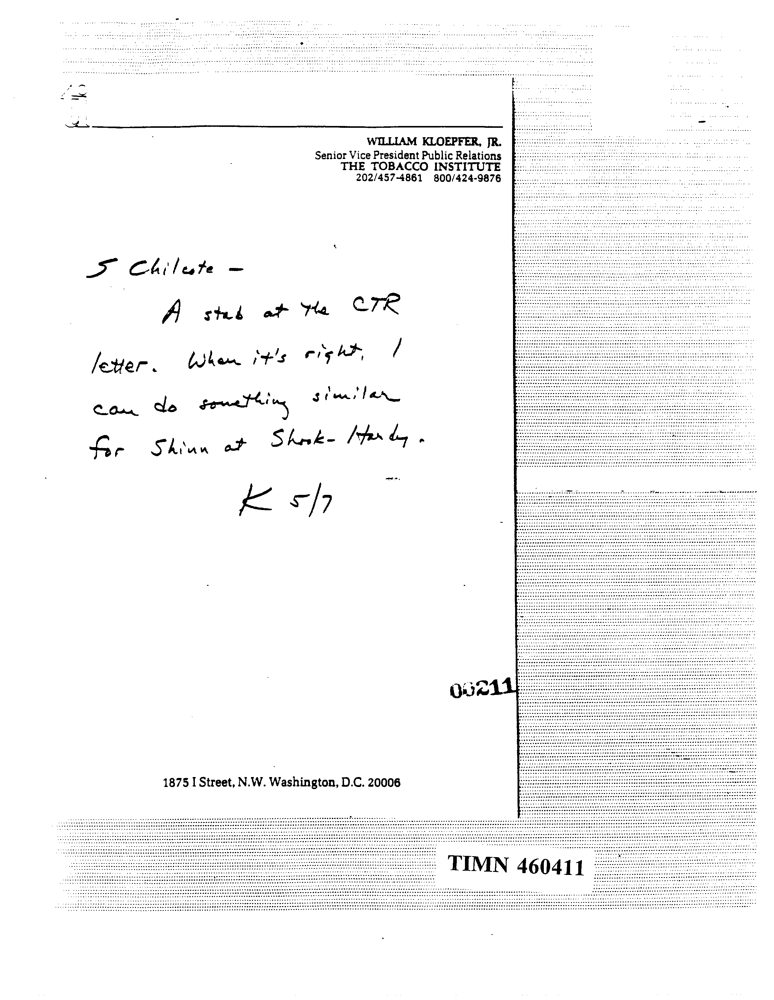 WILLIAM KLOEPFER, JR.
Senior Vice President Public Relations
THE TOBACCO INSTITUTE
202/457-4861 800/424-9876
S Chilcote –
A stab at the CTR
letter. When it's right, I
can do something similar
for Shinn at Shook-Hardy.
K 5/7
00211
1875 I Street, N.W. Washington, D.C. 20006
TIMN 460411